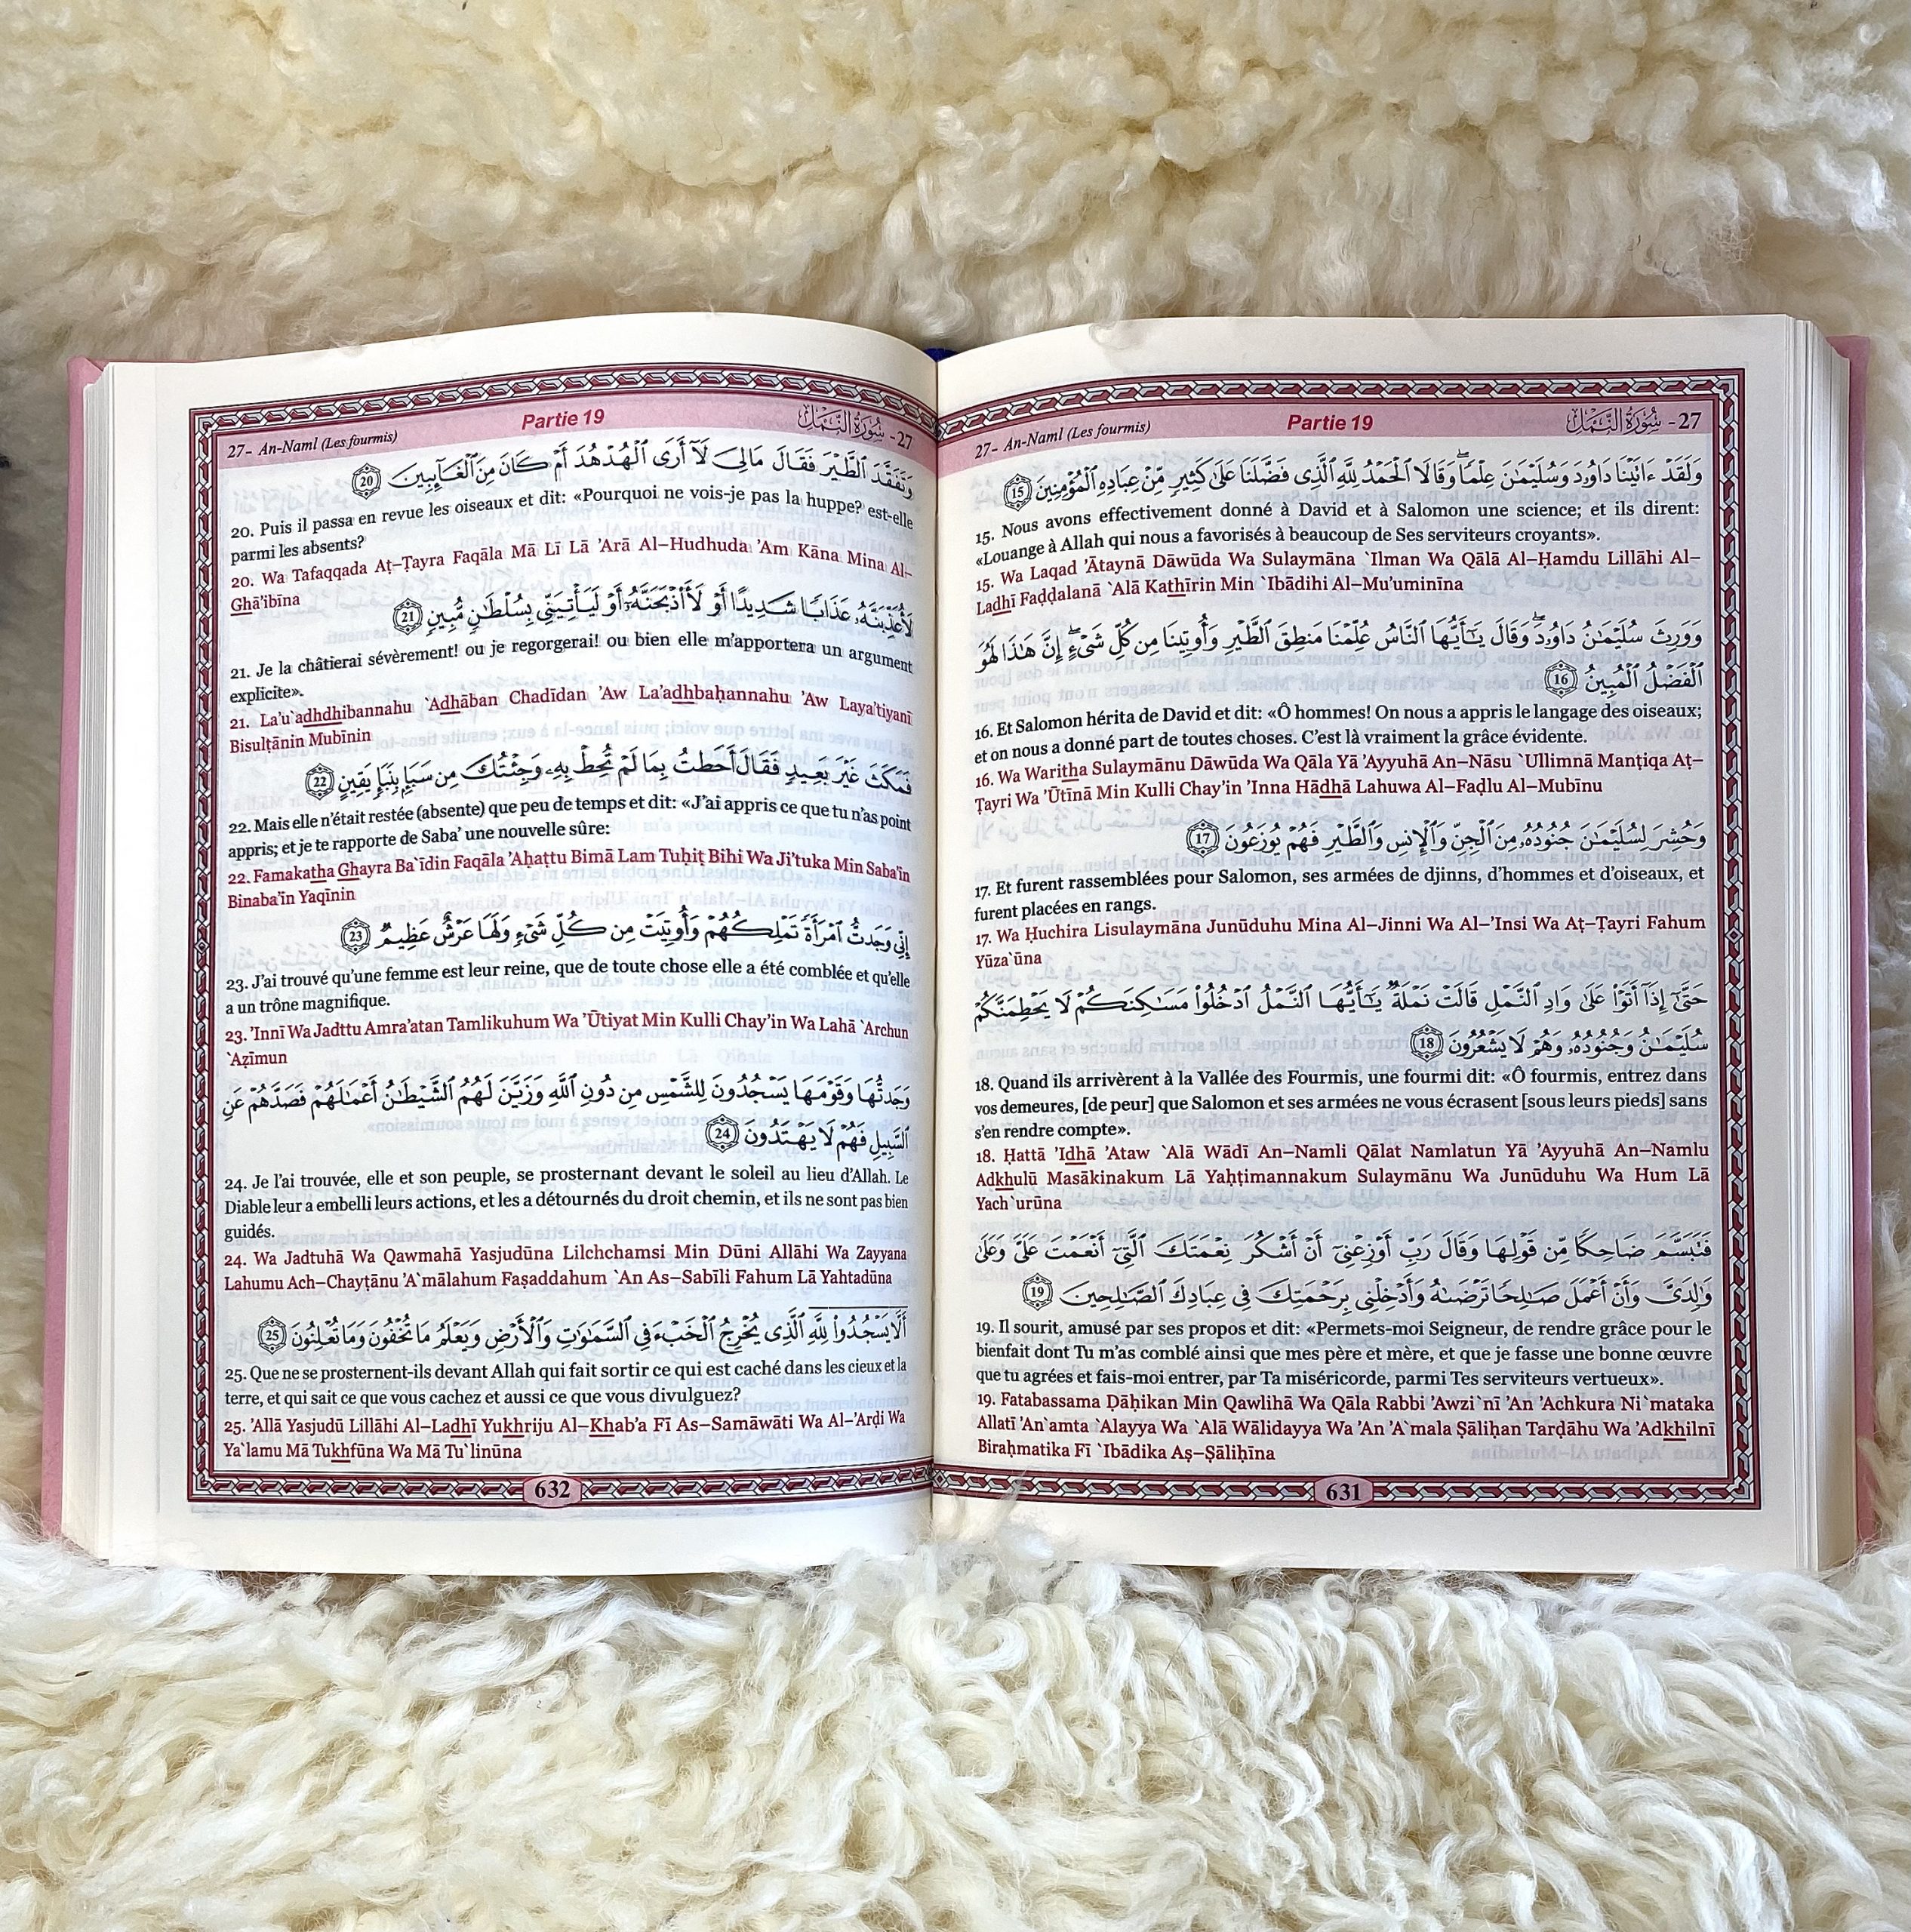 27- An-Naml (Les fourmis) Partie 19 27- سُورَةُ النَّمْل
وَلَقَدْ ءَاتَيْنَا دَاوُۥدَ وَسُلَيْمَٰنَ عِلْمًاۖ وَقَالَا ٱلْحَمْدُ لِلَّهِ ٱلَّذِى فَضَّلَنَا عَلَىٰ كَثِيرٍ مِّنْ عِبَادِهِ ٱلْمُؤْمِنِينَ 15
15. Nous avons effectivement donné à David et à Salomon une science; et ils dirent:
«Louange à Allah qui nous a favorisés à beaucoup de Ses serviteurs croyants».
15. Wa Laqad 'Ātaynā Dāwūda Wa Sulaymāna `Ilman Wa Qālā Al–Ḥamdu Lillāhi Al–
Ladhī Faḍḍalanā `Alá Kathīrin Min `Ibādihi Al–Mu'uminīna
وَوَرِثَ سُلَيْمَٰنُ دَاوُۥدَۖ وَقَالَ يَٰٓأَيُّهَا ٱلنَّاسُ عُلِّمْنَا مَنطِقَ ٱلطَّيْرِ وَأُوتِينَا مِن كُلِّ شَىْءٍۖ إِنَّ هَٰذَا لَهُوَ
ٱلْفَضْلُ ٱلْمُبِينُ 16
16. Et Salomon hérita de David et dit: «Ô hommes! On nous a appris le langage des oiseaux;
et on nous a donné part de toutes choses. C'est là vraiment la grâce évidente.
16. Wa Waritha Sulaymānu Dāwūda Wa Qāla Yā 'Ayyuhā An–Nāsu `Ullimnā Manṭiqa Aṭ–
Ṭayri Wa 'Ūtīnā Min Kulli Chay'in 'Inna Hādhā Lahuwa Al–Faḍlu Al–Mubīnu
وَحُشِرَ لِسُلَيْمَٰنَ جُنُودُهُۥ مِنَ ٱلْجِنِّ وَٱلْإِنسِ وَٱلطَّيْرِ فَهُمْ يُوزَعُونَ 17
17. Et furent rassemblées pour Salomon, ses armées de djinns, d'hommes et d'oiseaux, et
furent placées en rangs.
17. Wa Ḥuchira Lisulaymāna Junūduhu Mina Al–Jinni Wa Al–'Insi Wa Aṭ–Ṭayri Fahum
Yūza`ūna
حَتَّىٰٓ إِذَآ أَتَوْا۟ عَلَىٰ وَادِ ٱلنَّمْلِ قَالَتْ نَمْلَةٌ يَٰٓأَيُّهَا ٱلنَّمْلُ ٱدْخُلُوا۟ مَسَٰكِنَكُمْ لَا يَحْطِمَنَّكُمْ
سُلَيْمَٰنُ وَجُنُودُهُۥ وَهُمْ لَا يَشْعُرُونَ 18
18. Quand ils arrivèrent à la Vallée des Fourmis, une fourmi dit: «Ô fourmis, entrez dans
vos demeures, [de peur] que Salomon et ses armées ne vous écrasent [sous leurs pieds] sans
s'en rendre compte».
18. Ḥattá 'Idhā 'Ataw `Alá Wādī An–Namli Qālat Namlatun Yā 'Ayyuhā An–Namlu
Adkhulū Masākinakum Lā Yaḥṭimannakum Sulaymānu Wa Junūduhu Wa Hum Lā
Yach`urūna
فَتَبَسَّمَ ضَاحِكًا مِّن قَوْلِهَا وَقَالَ رَبِّ أَوْزِعْنِىٓ أَنْ أَشْكُرَ نِعْمَتَكَ ٱلَّتِىٓ أَنْعَمْتَ عَلَىَّ وَعَلَىٰ
وَٰلِدَىَّ وَأَنْ أَعْمَلَ صَٰلِحًا تَرْضَىٰهُ وَأَدْخِلْنِى بِرَحْمَتِكَ فِى عِبَادِكَ ٱلصَّٰلِحِينَ 19
19. Il sourit, amusé par ses propos et dit: «Permets-moi Seigneur, de rendre grâce pour le
bienfait dont Tu m'as comblé ainsi que mes père et mère, et que je fasse une bonne œuvre
que tu agrées et fais-moi entrer, par Ta miséricorde, parmi Tes serviteurs vertueux».
19. Fatabassama Ḍāḥikan Min Qawlihā Wa Qāla Rabbi 'Awzi`nī 'An 'Achkura Ni`mataka
Allatī 'An`amta `Alayya Wa `Alá Wālidayya Wa 'An 'A`mala Ṣāliḥan Tarḍāhu Wa 'Adkhilnī
Biraḥmatika Fī `Ibādika Aṣ–Ṣāliḥīna
631
27- An-Naml (Les fourmis) Partie 19 27- سُورَةُ النَّمْل
وَتَفَقَّدَ ٱلطَّيْرَ فَقَالَ مَالِىَ لَآ أَرَى ٱلْهُدْهُدَ أَمْ كَانَ مِنَ ٱلْغَآئِبِينَ 20
20. Puis il passa en revue les oiseaux et dit: «Pourquoi ne vois-je pas la huppe? est-elle
parmi les absents?
20. Wa Tafaqqada Aṭ–Ṭayra Faqāla Mā Lī Lā 'Ará Al–Hudhuda 'Am Kāna Mina Al–
Ghā'ibīna
لَأُعَذِّبَنَّهُۥ عَذَابًا شَدِيدًا أَوْ لَأَا۟ذْبَحَنَّهُۥٓ أَوْ لَيَأْتِيَنِّى بِسُلْطَٰنٍ مُّبِينٍ 21
21. Je la châtierai sévèrement! ou je regorgerai! ou bien elle m'apportera un argument
explicite».
21. La'u`adhdhibannahu `Adhāban Chadīdan 'Aw La'adhbaḥannahu 'Aw Laya'tiyanī
Bisulṭānin Mubīnin
فَمَكَثَ غَيْرَ بَعِيدٍ فَقَالَ أَحَطتُ بِمَا لَمْ تُحِطْ بِهِۦ وَجِئْتُكَ مِن سَبَإٍۭ بِنَبَإٍ يَقِينٍ 22
22. Mais elle n'était restée (absente) que peu de temps et dit: «J'ai appris ce que tu n'as point
appris; et je te rapporte de Saba' une nouvelle sûre:
22. Famakatha Ghayra Ba`īdin Faqāla 'Aḥaṭtu Bimā Lam Tuḥiṭ Bihi Wa Ji'tuka Min Saba'in
Binaba'in Yaqīnin
إِنِّى وَجَدتُّ ٱمْرَأَةً تَمْلِكُهُمْ وَأُوتِيَتْ مِن كُلِّ شَىْءٍ وَلَهَا عَرْشٌ عَظِيمٌ 23
23. J'ai trouvé qu'une femme est leur reine, que de toute chose elle a été comblée et qu'elle
a un trône magnifique.
23. 'Innī Wa Jadttu Amra'atan Tamlikuhum Wa 'Ūtiyat Min Kulli Chay'in Wa Lahā `Archun
`Aẓīmun
وَجَدتُّهَا وَقَوْمَهَا يَسْجُدُونَ لِلشَّمْسِ مِن دُونِ ٱللَّهِ وَزَيَّنَ لَهُمُ ٱلشَّيْطَٰنُ أَعْمَٰلَهُمْ فَصَدَّهُمْ عَنِ
ٱلسَّبِيلِ فَهُمْ لَا يَهْتَدُونَ 24
24. Je l'ai trouvée, elle et son peuple, se prosternant devant le soleil au lieu d'Allah. Le
Diable leur a embelli leurs actions, et les a détournés du droit chemin, et ils ne sont pas bien
guidés.
24. Wa Jadtuhā Wa Qawmahā Yasjudūna Lilchchamsi Min Dūni Allāhi Wa Zayyana
Lahumu Ach–Chayṭānu 'A`mālahum Faṣaddahum `An As–Sabīli Fahum Lā Yahtadūna
أَلَّا يَسْجُدُوا۟ لِلَّهِ ٱلَّذِى يُخْرِجُ ٱلْخَبْءَ فِى ٱلسَّمَٰوَٰتِ وَٱلْأَرْضِ وَيَعْلَمُ مَا تُخْفُونَ وَمَا تُعْلِنُونَ 25
25. Que ne se prosternent-ils devant Allah qui fait sortir ce qui est caché dans les cieux et la
terre, et qui sait ce que vous cachez et aussi ce que vous divulguez?
25. 'Allā Yasjudū Lillāhi Al–Ladhī Yukhriju Al–Khab'a Fī As–Samāwāti Wa Al–'Arḍi Wa
Ya`lamu Mā Tukhfūna Wa Mā Tu`linūna
632